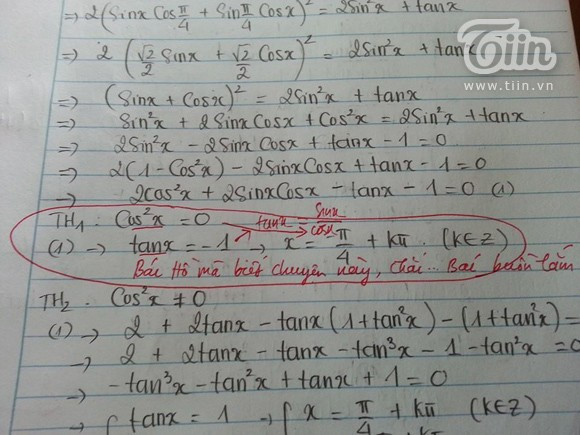 ⇒ 2(Sinx Cos π/4 + Sin π/4 Cosx)² = 2Sin²x + tanx
⇒ 2 (√2/2 Sinx + √2/2 Cosx)² = 2Sin²x + tanx
⇒ (Sinx + Cosx)² = 2Sin²x + tanx
⇒ Sin²x + 2SinxCosx + Cos²x = 2Sin²x + tanx
⇒ 2Sin²x - 2Sinx Cosx + tanx - 1 = 0
⇒ 2(1 - Cos²x) - 2SinxCosx + tanx - 1 = 0
⇒ 2cos²x + 2SinxCosx - tanx - 1 = 0 (1)
TH1 : Cos²x = 0 → tanx = Sinx/Cosx
(1) → tanx = -1 → x = π/4 + kπ. (k∈Z)
Bác Hồ mà biết chuyện này, chắc... Bác buồn lắm
TH2 . Cos²x ≠ 0
(1) → 2 + 2tanx - tanx(1+tan²x) - (1+tan²x) =
→ 2 + 2tanx - tanx - tan³x - 1 - tan²x = 0
→ -tan³x - tan²x + tanx + 1 = 0
→ { tanx = 1 → { x = π/4 + kπ (k∈Z)
Tiin
www.tiin.vn